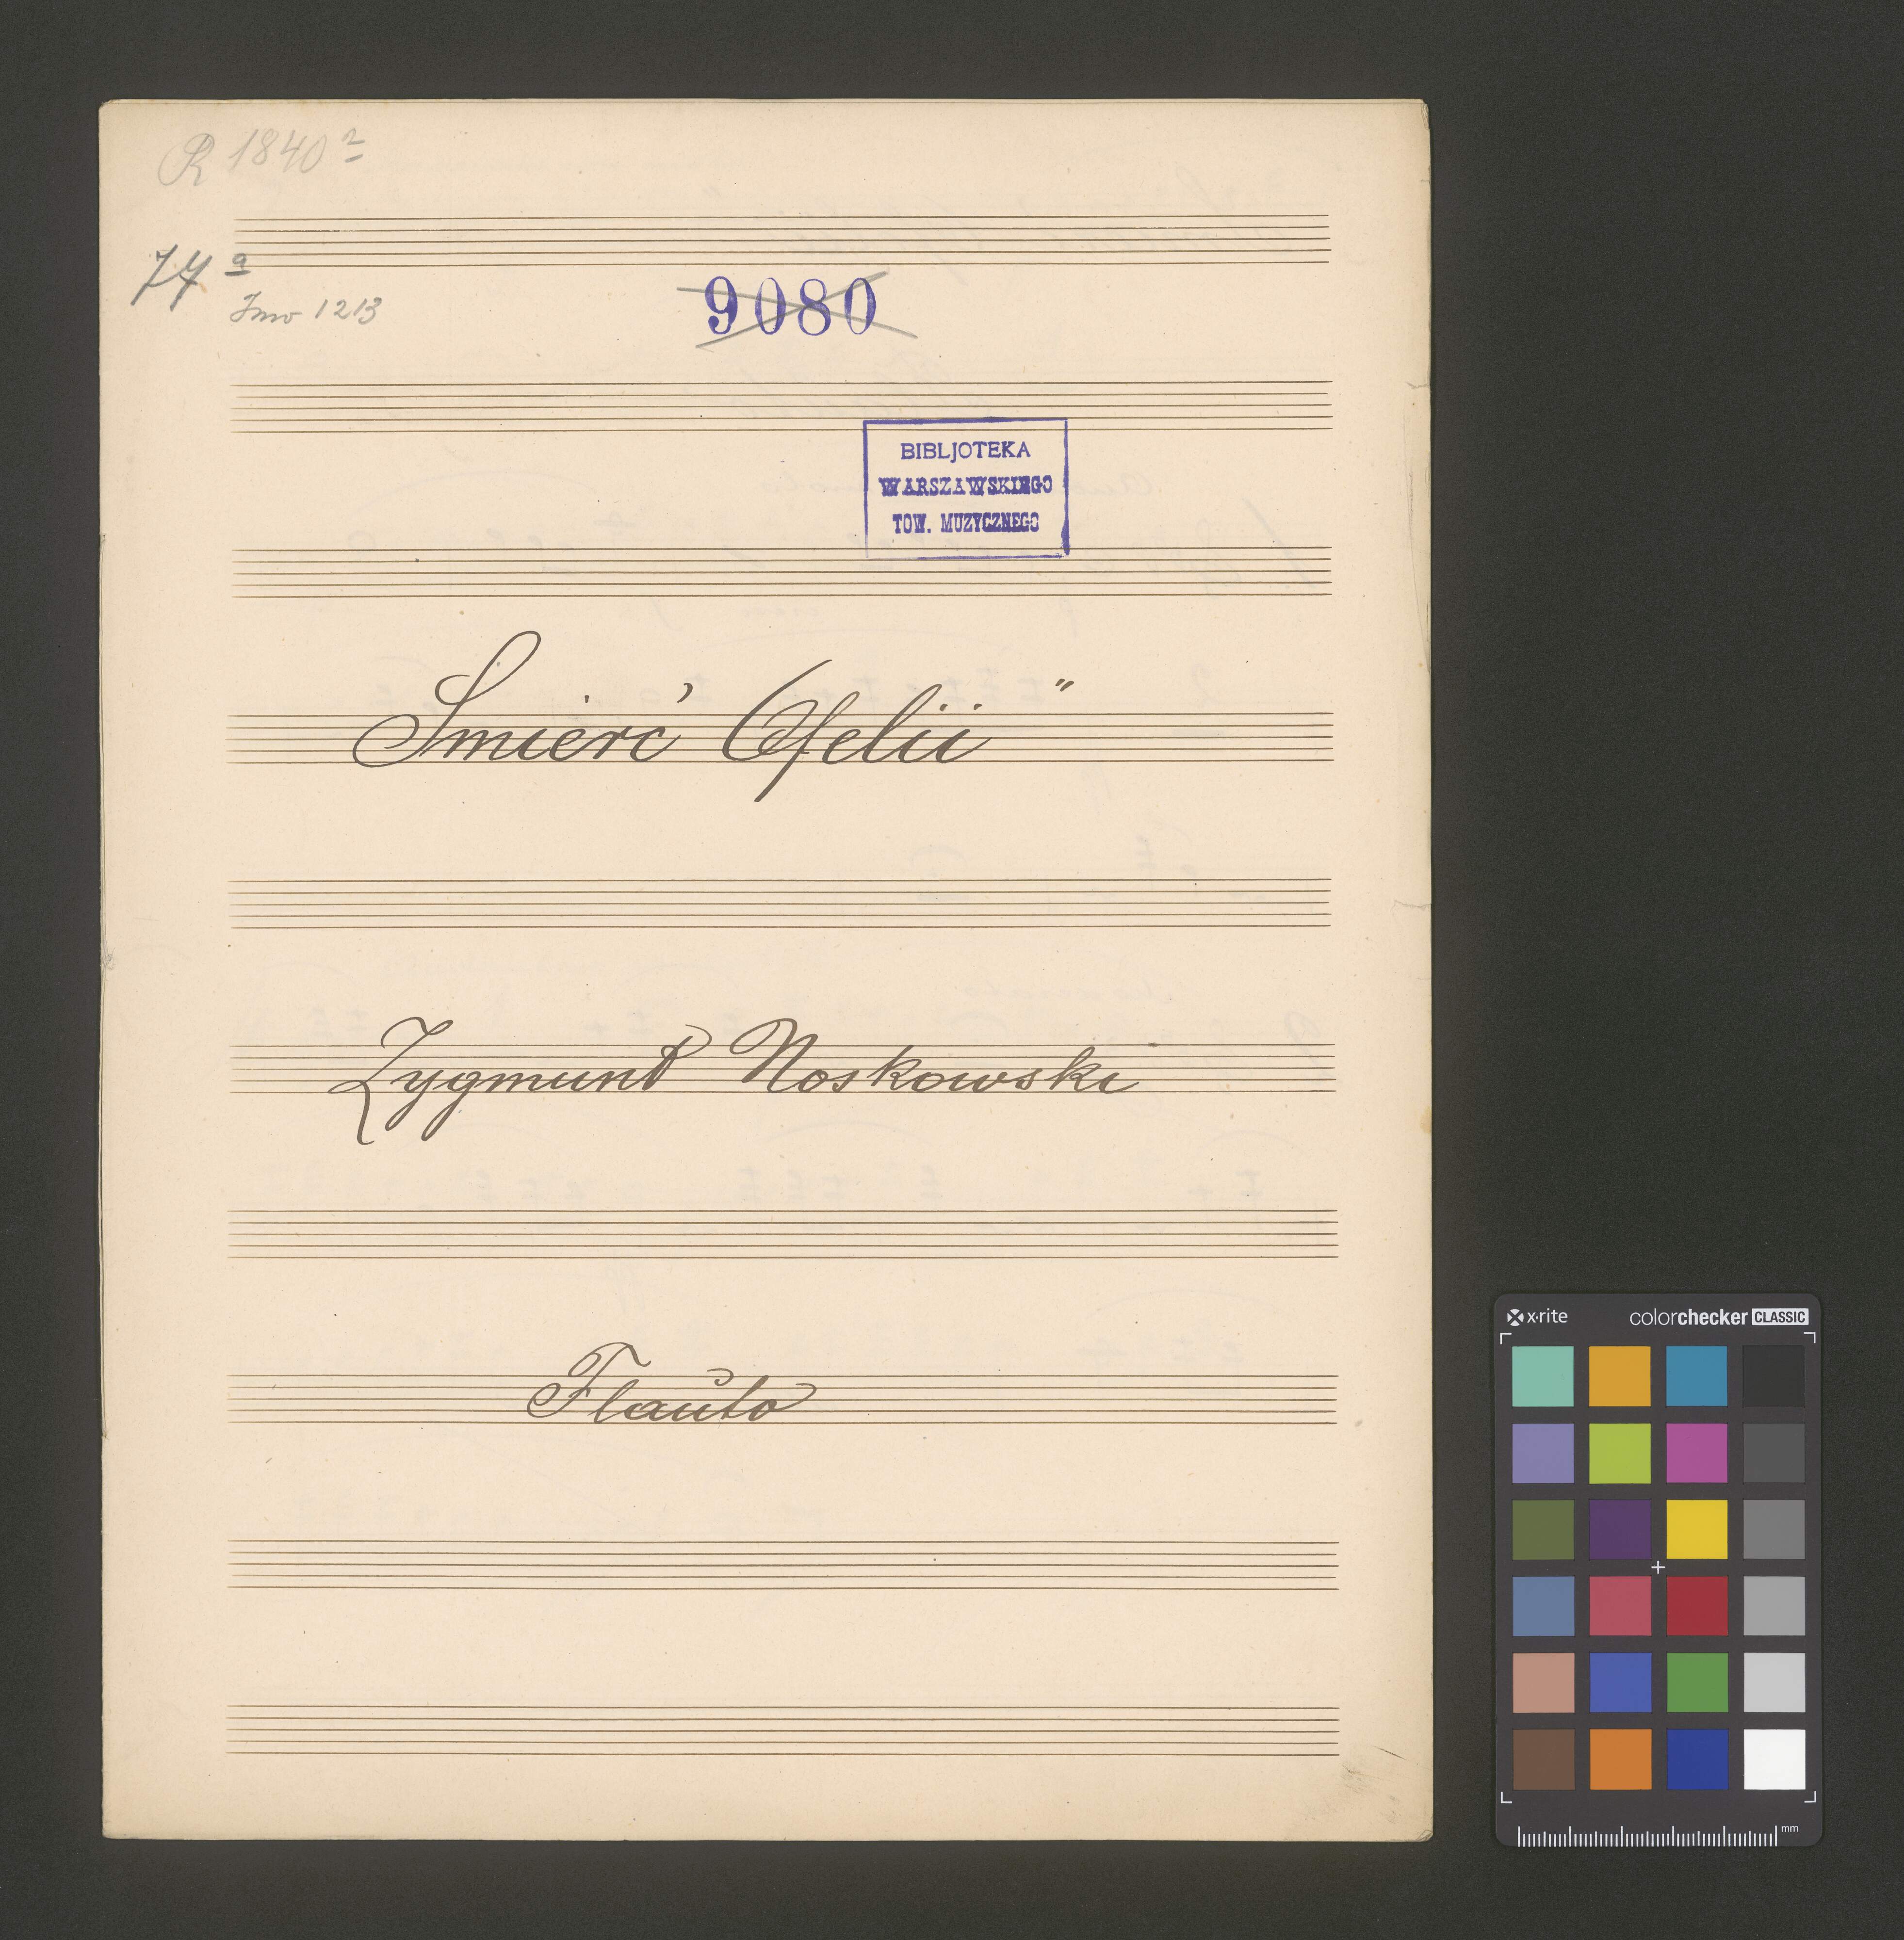 R 1840 2
74 a
Inw 1213
9080
BIBLJOTEKA
WARSZAWSKIEGO
TOW. MUZYCZNEGO
Śmierć Ofelii"
Zygmunt Noskowski
Flauto
x-rite colorchecker CLASSIC
mm